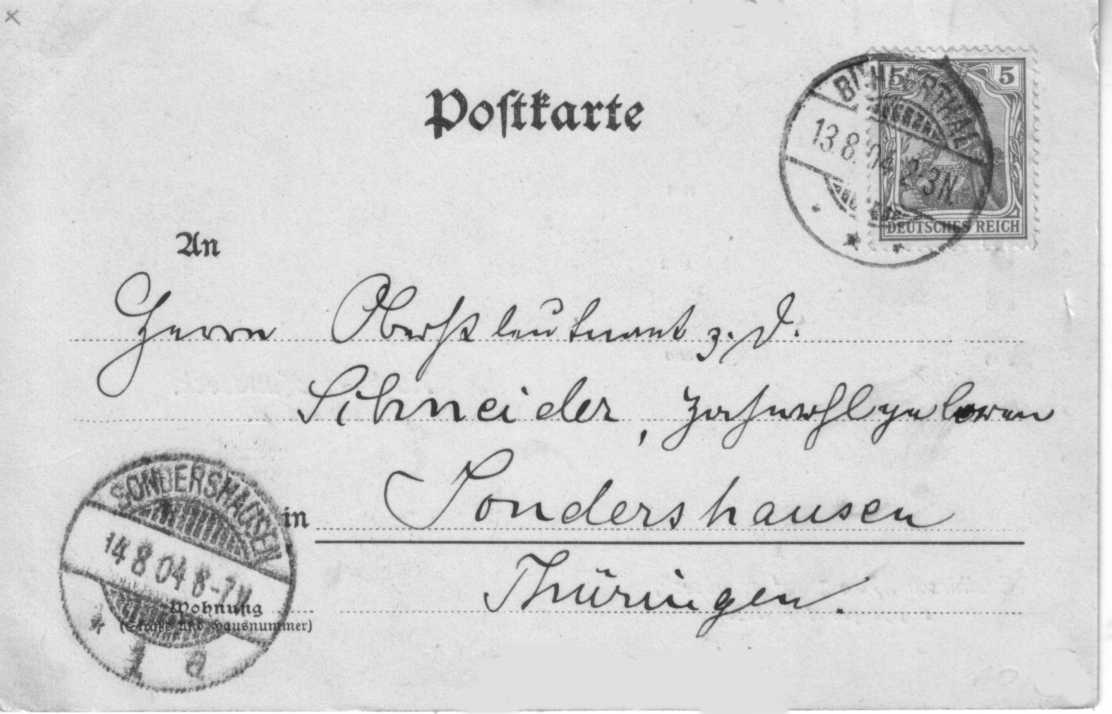 Postkarte
5 5
13.8.04 2-3N.
DEUTSCHES REICH
An
Herrn Oberstleutnant z. D.
Schneider, Hochwohlgeboren
in Sondershausen
Thüringen.
SONDERSHAUSEN
14 8 04
Wohnung
(Straße und Hausnummer)
1 a